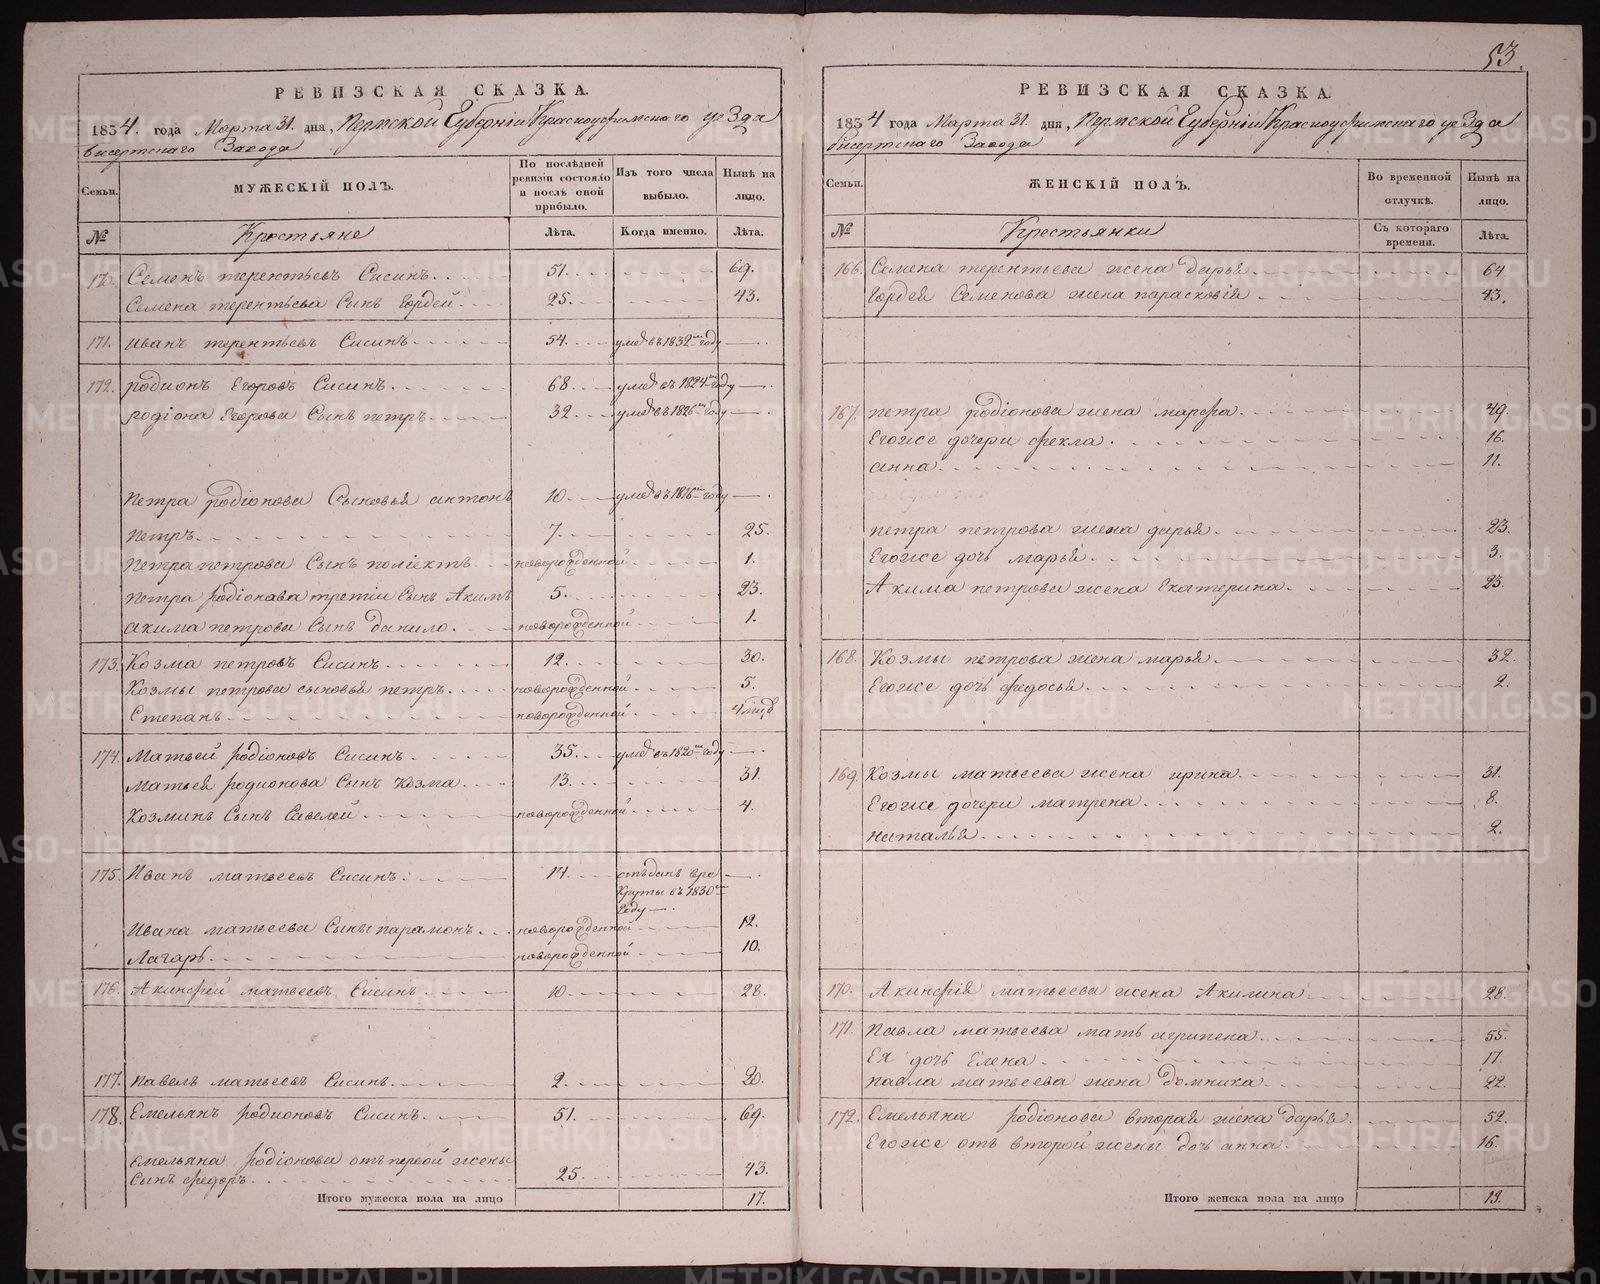 53.
РЕВИЗСКАЯ СКАЗКА.
1834. года Марта 31. дня, Пермской Губерніи Красноуфимскаго уезда
Бисертскаго Завода
Семьи.
МУЖЕСКІЙ ПОЛЪ.
По послѣдней ревизіи состояло и послѣ оной прибыло.
Изъ того числа выбыло.
Нынѣ на лицо.
№
Крестьяне
Лѣта.
Когда именно.
Лѣта.
170. Семенъ терентьевъ Сисинъ. 51. 69.
Семена терентьева Сынъ Гордей. 25. 43.
171. Иванъ терентьевъ Сисинъ. 54. умеръ въ 1832м году
172. родионъ Егоровъ Сисинъ. 68. умеръ въ 1824м году
родіона Егорова Сынъ петръ. 32. умеръ въ 1826м году
Петра родіонова Сыновья антонъ 10. умеръ въ 1816м году
Петръ. 7. 25.
Петра петрова Сынъ поліектъ. новорожденной 1.
Петра родіонава третіи Сынъ Акимъ 5. 23.
акима петрова Сынъ данило. новорожденной 1.
173. Козма петровъ Сисинъ. 12. 30.
Козмы петрова сыновья петръ. новорожденной 5.
Степанъ. новорожденной 4 мцъ
174. Матвей родіоновъ Сисинъ. 35. умеръ въ 1820м году
матвея родионова Сынъ Козма. 13. 31.
Козминъ Сынъ Савелей. новорожденной 4.
175. Иванъ матвеевъ Сисинъ. 14. отъданъ вре
Круты въ 1830м
Году
Ивана матвеева Сынъ парамонъ. новорожденной 12.
Лагаръ. новорожденной 10.
176. Акинфей матвеевъ Сисинъ. 10. 28.
177. павелъ матвеевъ Сисинъ. 2. 20.
178. Емельянъ родионовъ Сисинъ. 51. 69.
Емельяна родіонова отъ первой жены
Сынъ федоръ. 25. 43.
Итого мужеска пола на лицо 17.
РЕВИЗСКАЯ СКАЗКА.
1834 года Марта 31. дня, Пермской Губерніи Красноуфимскаго уезда
Бисертскаго Завода
Семьи.
ЖЕНСКІЙ ПОЛЪ.
Во временной отлучкѣ.
Нынѣ на лицо.
№
Крестьянки
Съ котораго времени.
Лѣта.
166. Семена терентьева жена дарья 64
Гордея Семенова жена парасковія 43.
167. петра родіонова жена марфа. 49.
Егоже дочери фекла. 16.
анна. 11.
петра петрова жена дарья. 23.
Егоже дочь марья. 3.
Акима петрова жена Екатерина. 23.
168. Козмы петрова жена марья. 32.
Егоже дочь федосья. 2.
169. Козмы матвеева жена ирина. 31.
Егоже дочери матрена. 8.
наталья. 2.
170. Акинфія матвеева жена Акилина 28.
171. Павла матвеева мать агрипена. 55.
Ея дочь Елена. 17.
павла матвеева жена домника. 22.
172. Емельяна родіонова вторая жена дарья. 52.
Егоже отъ второй жены дочь анна. 16.
Итого женска пола на лицо 19.
METRIKI.GASO-URAL.RU